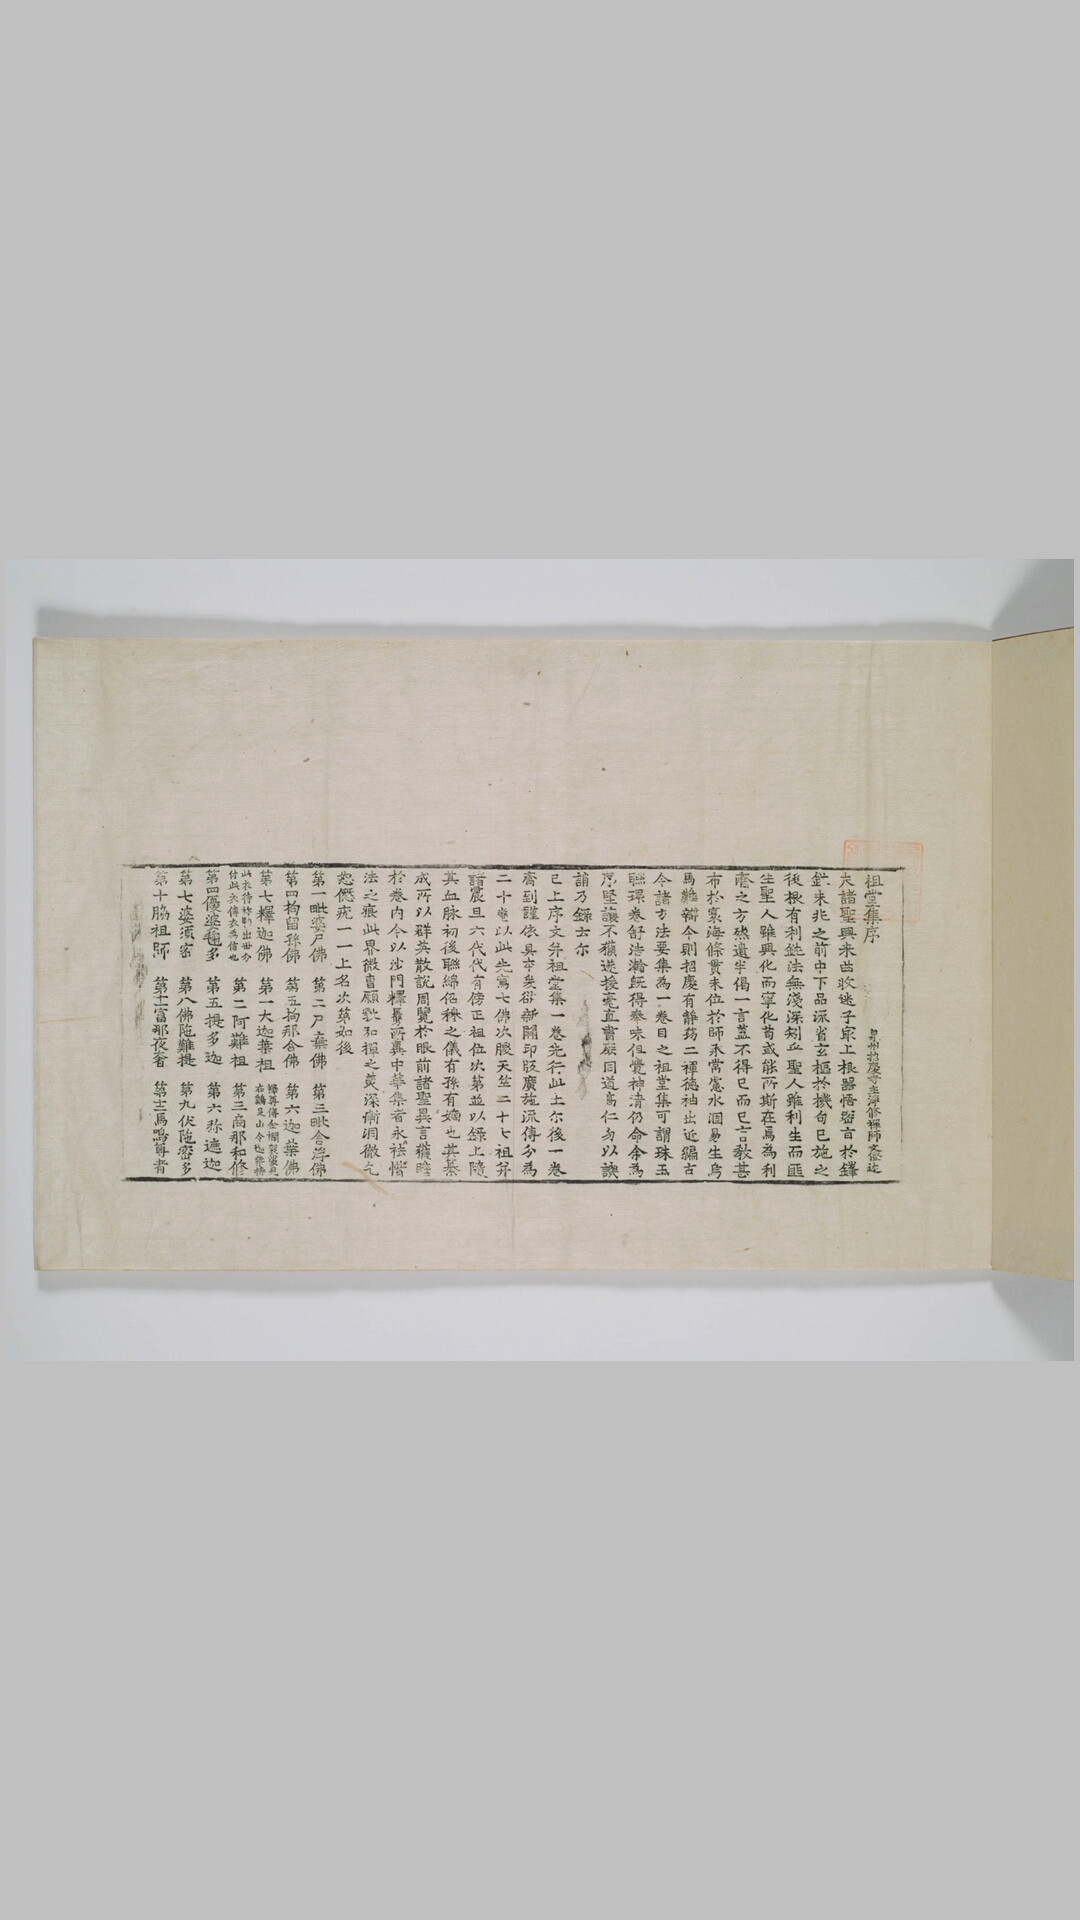 祖堂集序
泉州招慶寺主淨修禪師文僜述
夫諸聖興来曲收迷子最上根器悟密旨於鋒
鋩未兆之前中下品流省玄樞於機句已施之
後根有利鈍法無淺深矧乎聖人雖利生而匪
生聖人雖興化而寧化苟或能所斯在焉為利
濟之方然遺半偈一言蓋不得已而已言教甚
布於寰海條貫未位於師承常慮水涸易生烏
馬難辯今則招慶有靜筠二禪德袖出近編古
今諸方法要集為一卷目之祖堂集可謂珠玉
聯環卷舒浩瀚既得奉味但覺神清仍命余為
序堅讓不獲遂援毫直書庶同道高仁勿以譏
誚乃錄云尔
已上序文并祖堂集一卷先行此土尔後一卷
齊到謹依具本矣欲新開印版廣施流傳分為
二十卷以此先寫七佛次朡天竺二十七祖并
諸震旦六代代有傍正祖位次第並以錄上隨
其血脉初後聯綿佋穆之儀有孫有嫡也其纂
成所以群英散說周覽於眼前諸聖異言獲瞻
於卷內今以沙門釋匡所冀中華集者永祛惽
法之痕此界微曹願弘和禪之美深慚洞徹之
恕僫疣一一上名次第如後
第一毗婆尸佛 第二尸棄佛 第三毗舍浮佛
第四拘留孫佛 第五拘那含佛 第六迦葉佛
第七釋迦佛 第一大迦葉祖
此衣待弥勒出世分付此衣傳衣為信也 第二阿難祖 第三商那和修
第四優婆毱多 第五提多迦 第六弥遮迦
第七婆須密 第八佛陁難提 第九伏陁密多
第十脇祖師 第十一富那夜奢 第十二馬鳴尊者